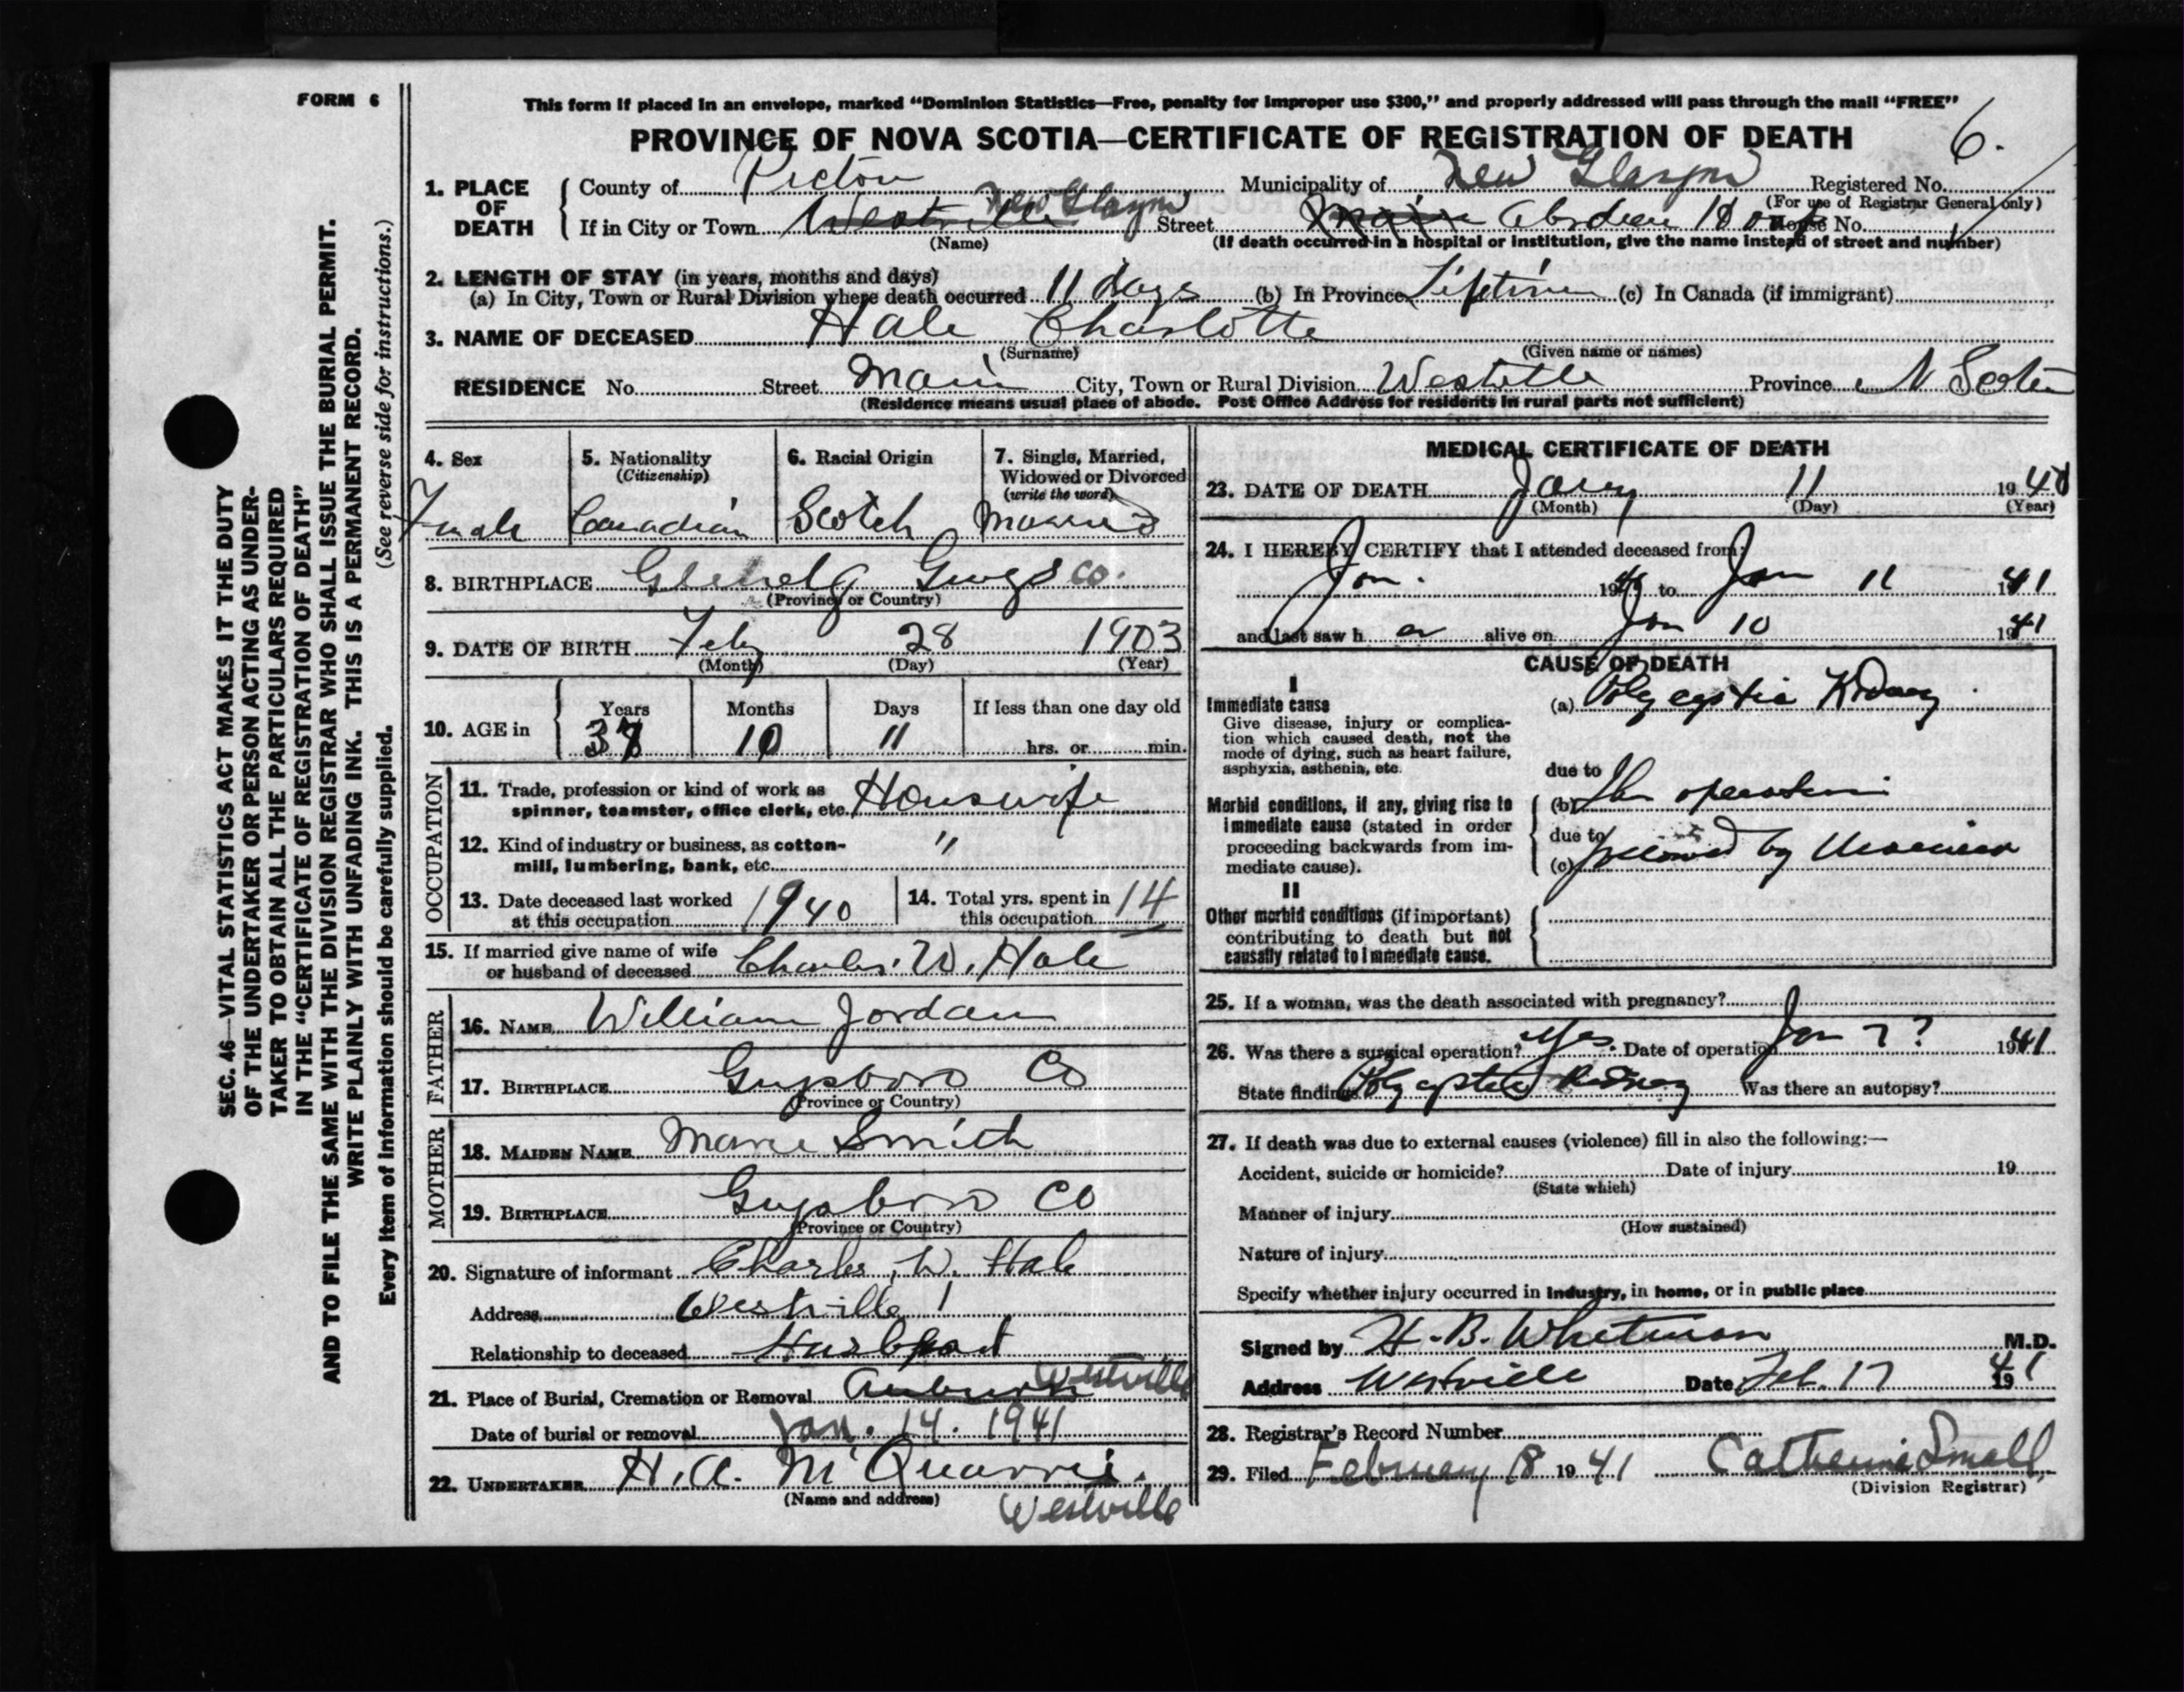 FORM 6
This form if placed in an envelope, marked “Dominion Statistics—Free, penalty for improper use $300,” and properly addressed will pass through the mail “FREE”
PROVINCE OF NOVA SCOTIA—CERTIFICATE OF REGISTRATION OF DEATH
6.
1. PLACE OF DEATH
County of Pictou Municipality of New Glasgow Registered No.
(For use of Registrar General only)
If in City or Town Westville New Glasgow Street Main Aberdeen Hosp House No.
(Name) (If death occurred in a hospital or institution, give the name instead of street and number)
2. LENGTH OF STAY (in years, months and days)
(a) In City, Town or Rural Division where death occurred 11 days (b) In Province Lifetime (c) In Canada (if immigrant)
3. NAME OF DECEASED Hale Charlotte
(Surname) (Given name or names)
RESIDENCE No. Street Main City, Town or Rural Division Westville Province N Scotia
(Residence means usual place of abode. Post Office Address for residents in rural parts not sufficient)
4. Sex
Female
5. Nationality
(Citizenship)
Canadian
6. Racial Origin
Scotch
7. Single, Married, Widowed or Divorced
(write the word)
Married
8. BIRTHPLACE Co.
(Province or Country)
9. DATE OF BIRTH Feby 28 1903
(Month) (Day) (Year)
10. AGE in
Years Months Days If less than one day old
37 10 11 hrs. or min.
OCCUPATION
11. Trade, profession or kind of work as
spinner, teamster, office clerk, etc. Housewife
12. Kind of industry or business, as cotton-
mill, lumbering, bank, etc. "
13. Date deceased last worked
at this occupation 1940
14. Total yrs. spent in
this occupation 14
15. If married give name of wife
or husband of deceased Charles. W. Hale
FATHER
16. NAME William Jordan
17. BIRTHPLACE Guysboro Co
(Province or Country)
MOTHER
18. MAIDEN NAME Marie Smith
19. BIRTHPLACE Guysboro Co
(Province or Country)
20. Signature of informant Charles. W. Hale
Address Westville
Relationship to deceased Husband
21. Place of Burial, Cremation or Removal Auburn Westville
Date of burial or removal Jan. 14. 1941
22. UNDERTAKER H. A. McQuarrie.
(Name and address) Westville
MEDICAL CERTIFICATE OF DEATH
23. DATE OF DEATH Jany 11 1941
(Month) (Day) (Year)
24. I HEREBY CERTIFY that I attended deceased from:
Jan. 1941 to Jan 11 1941
and last saw h er alive on Jan 10 1941
CAUSE OF DEATH
I
Immediate cause
Give disease, injury or complica-
tion which caused death, not the
mode of dying, such as heart failure,
asphyxia, asthenia, etc.
(a) Polycystic Kidney
due to
Morbid conditions, if any, giving rise to
immediate cause (stated in order
proceeding backwards from im-
mediate cause).
(b) operation
due to
(c) by Uraemia
II
Other morbid conditions (if important)
contributing to death but not
causally related to immediate cause.
25. If a woman, was the death associated with pregnancy?
26. Was there a surgical operation? Yes. Date of operation Jan 7? 1941
State findings Polycystic Kidney Was there an autopsy?
27. If death was due to external causes (violence) fill in also the following:—
Accident, suicide or homicide? Date of injury 19
(State which)
Manner of injury
(How sustained)
Nature of injury
Specify whether injury occurred in industry, in home, or in public place
Signed by H. B. Whitman M.D.
Address Westville Date Feb. 17 1941
28. Registrar's Record Number
29. Filed February 18 1941 Catherine Small
(Division Registrar)
SEC. 46—VITAL STATISTICS ACT MAKES IT THE DUTY
OF THE UNDERTAKER OR PERSON ACTING AS UNDER-
TAKER TO OBTAIN ALL THE PARTICULARS REQUIRED
IN THE “CERTIFICATE OF REGISTRATION OF DEATH”
AND TO FILE THE SAME WITH THE DIVISION REGISTRAR WHO SHALL ISSUE THE BURIAL PERMIT.
WRITE PLAINLY WITH UNFADING INK. THIS IS A PERMANENT RECORD.
Every item of information should be carefully supplied. (See reverse side for instructions.)